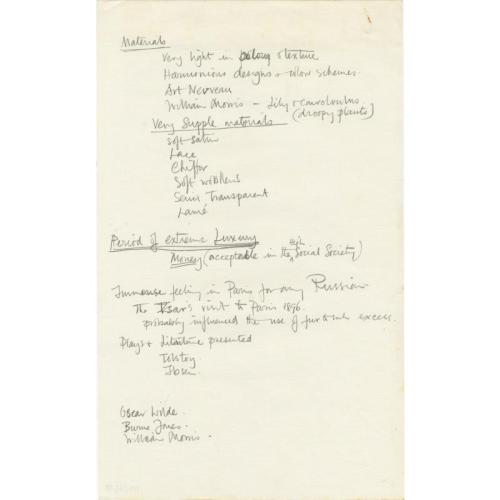 Materials
Very light in colour & texture
Harmonious designs & colour schemes.
Art Nouveau
William Morris - Lily & convolvulus
(droopy plants)
Very Supple materials
Soft satin
Lace
Chiffon
Soft woollens
Semi Transparent
Lamé
Period of extreme Luxury
Money (acceptable in the High Social Society)
Immense feeling in Paris for any Russian
The Tsar's visit to Paris 1896.
probably influenced the use of fur to such excess.
Plays & Literature presented
Tolstoy
Ibsen
Oscar Wilde.
Burne Jones.
William Morris.